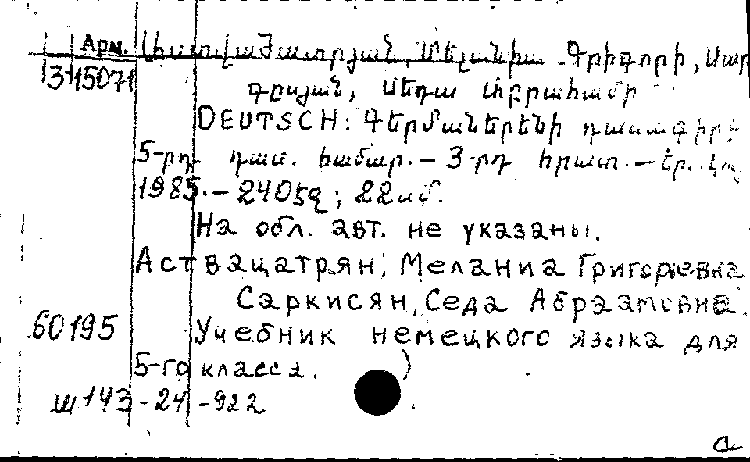 Арм. Աստվածատրյան, Մելանիա Գրիգորի, Սար
3115071 գսյան, Սեդա Աբրահամի
DEUTSCH: Գերմաներենի դասագիրք
5-րդ դաս. համար. – 3-րդ հրատ. – Եր.
1985. – 240 էջ; 22 սմ.
На обл. авт. не указаны.
Аствацатрян, Мелания Григорьевна
Саркисян, Седа Абраамовна.
60195 Учебник немецкого языка для
5-го класса. )
Ш143-24-922